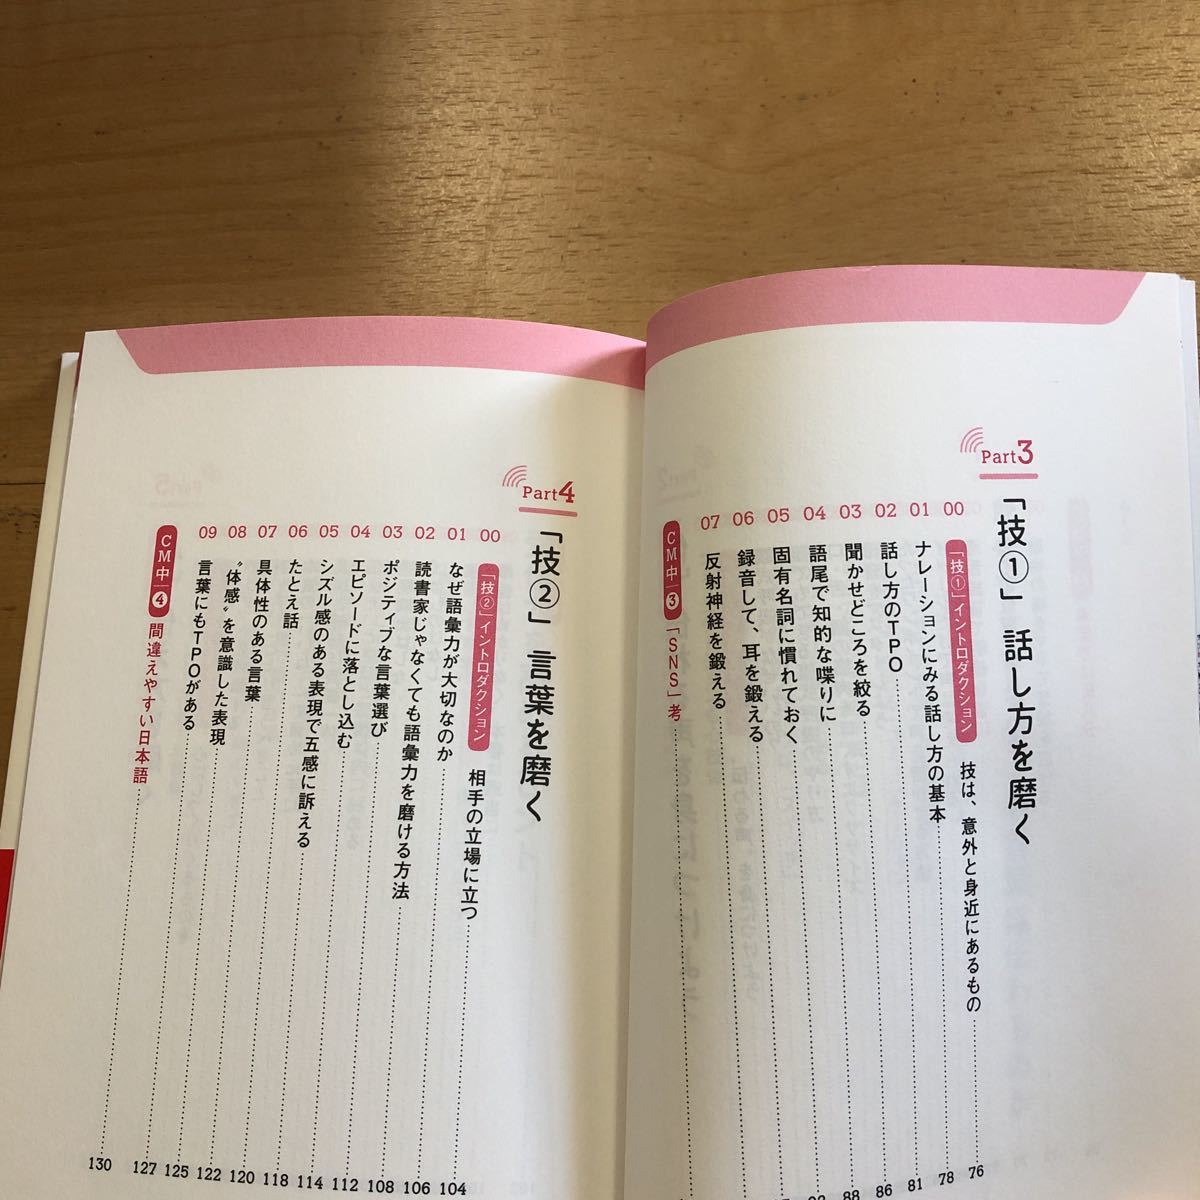 Part3
「技①」 話し方を磨く
00 「技①」イントロダクション 技は、意外と身近にあるもの 76
01 ナレーションにみる話し方の基本 78
02 話し方のTPO 81
03 聞かせどころを絞る 86
04 語尾で知的な喋りに 88
05 固有名詞に慣れておく
06 録音して、耳を鍛える
07 反射神経を鍛える
CM中 3 「SNS」考
Part4
「技②」 言葉を磨く
00 「技②」イントロダクション 相手の立場に立つ 104
01 なぜ語彙力が大切なのか 106
02 読書家じゃなくても語彙力を磨ける方法 108
03 ポジティブな言葉選び 112
04 エピソードに落とし込む 114
05 シズル感のある表現で五感に訴える 118
06 たとえ話 120
07 具体性のある言葉 122
08 〝体感〟を意識した表現 125
09 言葉にもTPOがある 127
CM中 4 間違えやすい日本語 130